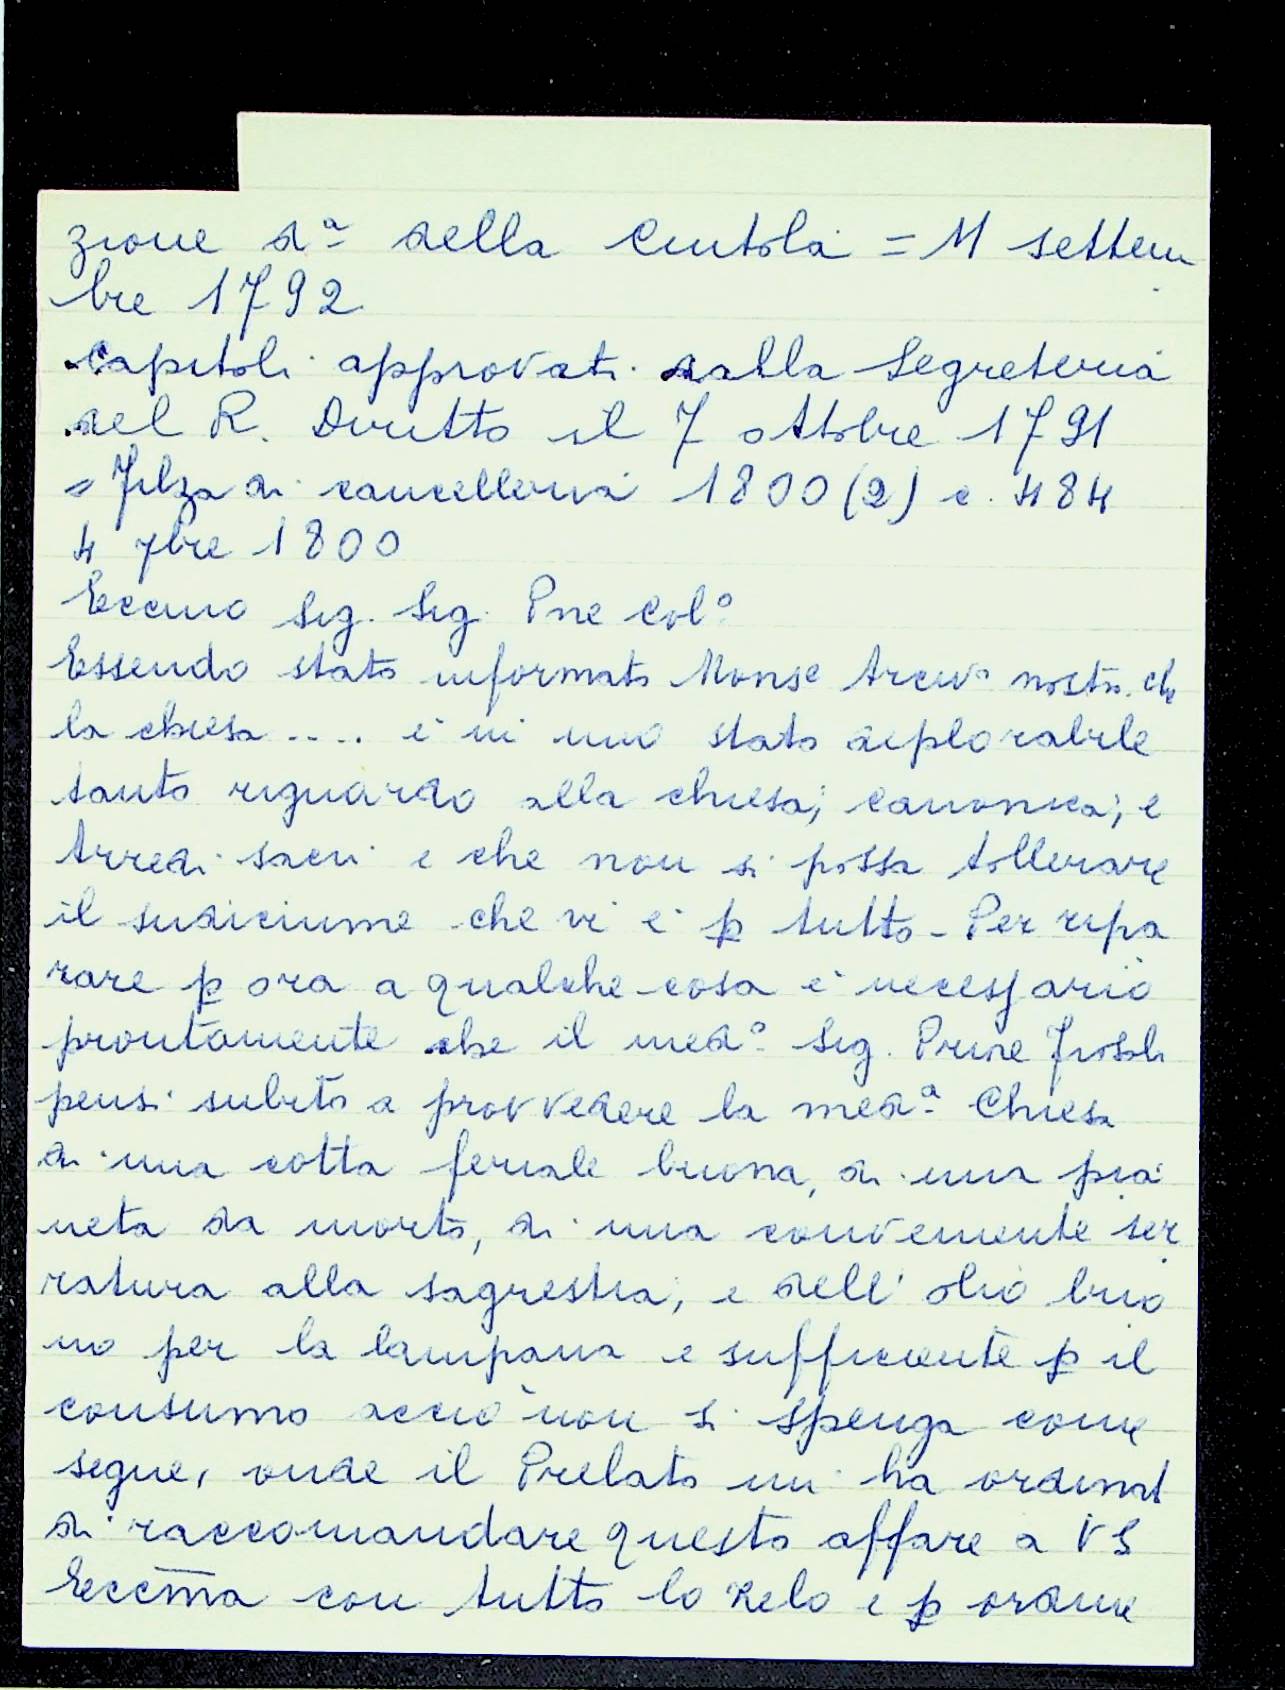 zione da della Cintola = 11 settem
bre 1792
Capitoli approvati dalla Segreteria
del R. Diritto il 7 ottobre 1791
= Filza di cancelleria 1800 (2) c. 484
4 7bre 1800
Eccmo Sig. Sig. Pne Colo
Essendo stato informato Monse Arcivo nostro che
la chiesa .... è in uno stato deplorabile
tanto riguardo alla chiesa; canonica; e
Arredi sacri e che non si possa tollerare
il sudiciume che vi è p tutto - Per ripa
rare p ora a qualche cosa è necessario
prontamente che il medo Sig. Priore
pensi subito a provvedere la meda Chiesa
di una cotta feriale buona, di una pia
neta da morto, di una conveniente ser
ratura alla sagrestia, e dell' olio buo
no per la lampana e sufficiente p il
consumo acciò non si spenga come
segue, onde il Prelato mi ha ordinat
di raccomandare questo affare a VS
Eccma con tutto lo zelo e p ordine